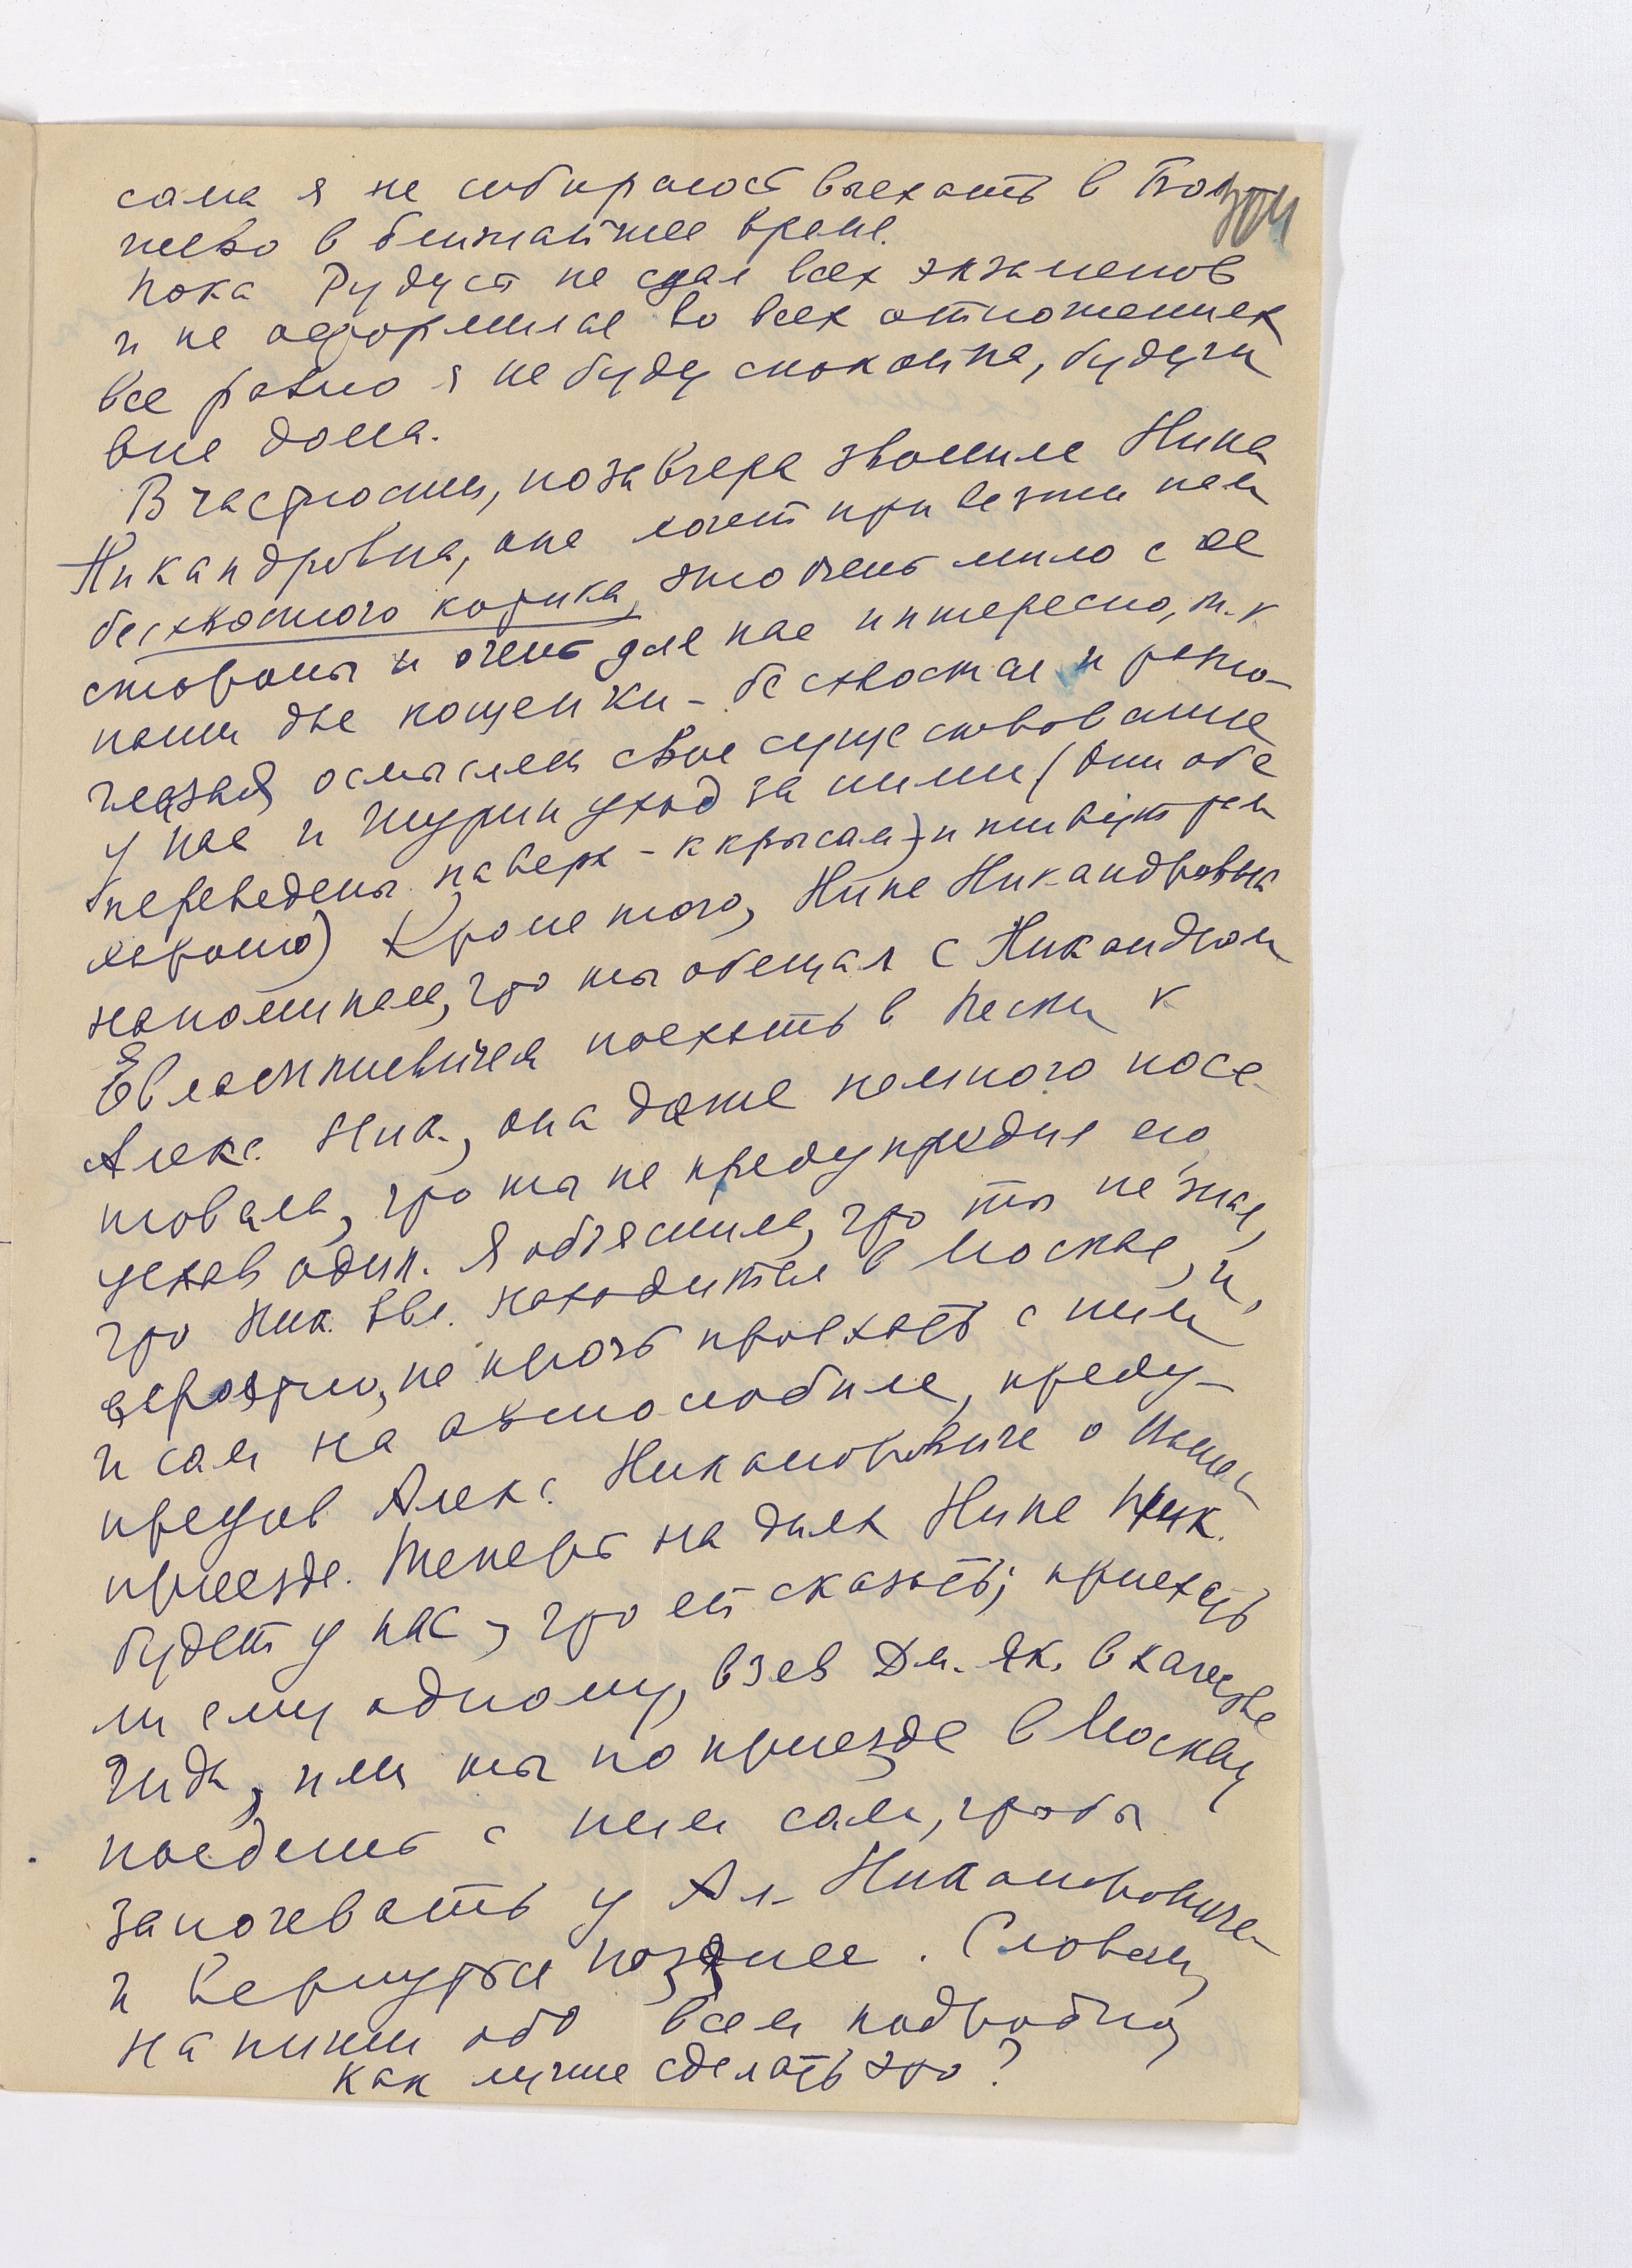 сама я не собираюсь выехать в Бол
шево в ближайшее время.
Пока Рудуся не сдал всех экзаменов
и не оформился во всех отношениях
все равно я не буду спокойна, будучи
вне дома.
В частности, позавчера звонила Нина
Никандровна, она хочет привезти нам
бесхвостого котика, это очень мило с ее
стороны и очень для нас интересно, т.к
наши две кошечки - бесхвостая и разно-
глазая осмыслят свое существование
у нас и Шурин уход за ними (они обе
переведены наверх - к крысам) и живут там
хорошо) Кроме того, Нина Никандровна
напомнила, что ты обещал с Никандром
Евлампиевичем поехать в Пески к
Алекс. Ник., она даже немного посе-
товала, что ты не предупредил его,
уехав один. Я объяснила, что ты не знал,
что Ник. Евл. находится в Москве, и,
вероятно, не прочь проехать с ним
и сам на автомобиле, преду-
предив Алекс. Никаноровича о вашем
приезде. Теперь на днях Нина Ник.
будет у нас, что ей сказать; приехать
ли ему одному, взяв Дм. Як. в качестве
гида, или ты по приезде в Москву
поедешь с ним сам, чтобы
заночевать у Ал. Никаноровича
и вернуться позднее. Словом,
напиши обо всем подробно,
как лучше сделать это?